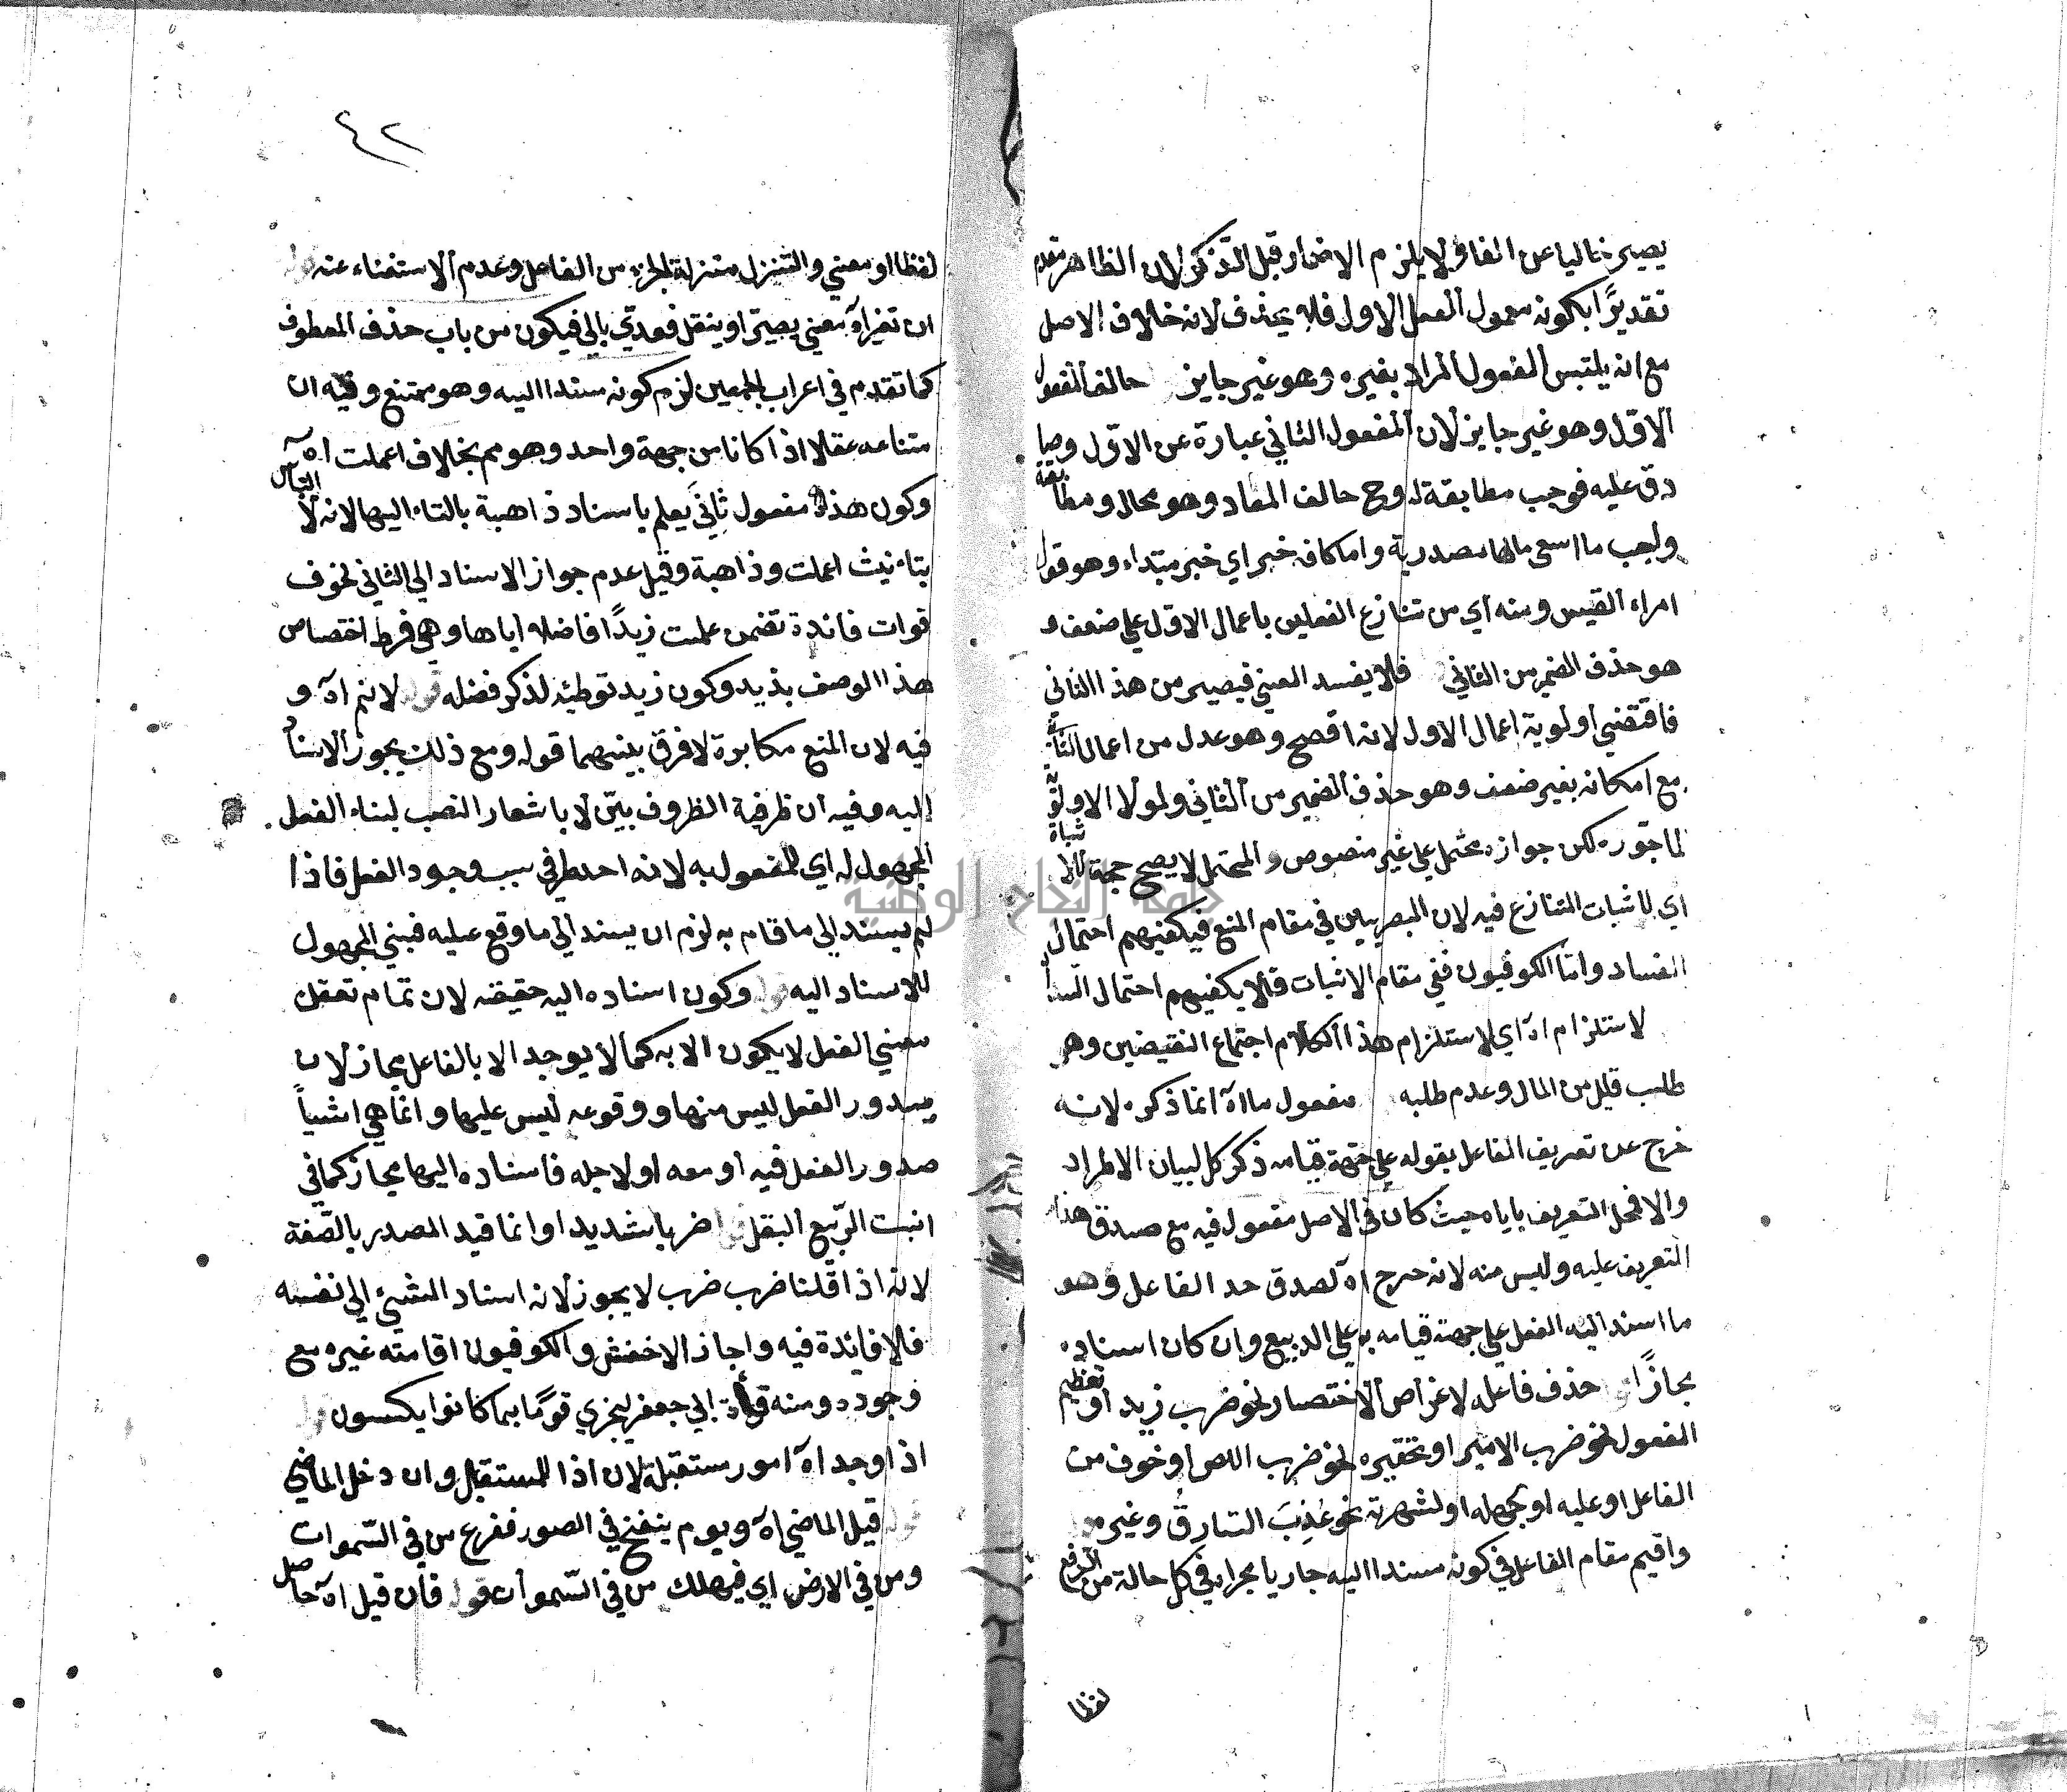 يصير خاليا عن الفاعل ولا يلزم الاضمار قبل الذكر لان الظاهر مقدم
تقديرًا بكونه معمول الفعل الاول فله يحذف لانه خلاف الاصل
مع انه يلتبس المفعول المراد بغيره وهو غير جايز حالف المفعول
الاول وهو غير جايز لان المفعول الثاني عبارة عن الاول وصا
دق عليه فوجب مطابقة له وح حالف المعاد وهو محال ومطابقة
واجب ما اسعى ما مصدرية واما كافه خبر اي خبر مبتداء وهو قول
امراء القيس ومنه اي من تنازع الفعلين باعمال الاول علي ضعف و
هو حذف الضمير من الثاني فلا يفسد المعني فيصير من هذا الثاني
فاقتضي اولوية اعمال الاول لانه افصح وهو عدل من اعمال الثاني
مع امكانه بغير ضعف وهو حذف الضمير من الثاني ولولا الاولوية
لما جوزه لكن جوازه محتمل علي غير منصوص والمحتمل لا يصح حجة للاثباة
اي لاثبات المتنازع فيه لان البصريين في مقام المنع فيكفيهم احتمال
الفساد واما الكوفيون ففي مقام الاثبات فلا يكفيهم احتمال
لاستلزام اه اي لاستلزام هذا الكلام اجتماع النقيضين وهو
طلب قليل من المال وعدم طلبه مفعول ما اه انما ذكره لانه
خرج عن تعريف الفاعل بقوله علي جهة قيامه ذكر كل لبيان الاطراد
والا فحل التعريف باياه حيث كان في الاصل مفعول فيه مع صدق هذا
التعريف عليه وليس منه لانه خرج اه لصدق حد الفاعل وهو
ما اسند اليه الفعل علي جهة قيامه به علي الربيع وان كان اسناده
مجازًا حذف فاعله لاغراض الاختصار نحو ضرب زيد او تعظيم
المفعول نحو ضرب الامير او تحقيره نحو ضرب اللص او خوف من
الفاعل او عليه او جهله او لشهرته نحو عُذِبَ السارقُ وغيره
واقيم مقام الفاعل في كونه مسندا اليه جاريا مجراه في كل حالة من الرفع
لفظا
٤٢
لفظا او معني والتنزل منزلة الجزء من الفاعل وعدم الاستغناء عنه قوله
ان تغيراه معني يصير او ينقل فعدي بالي فيكون من باب حذف المعطوف
كما تقدم في اعراب الجمعين لزم كونه مسندا اليه وهو ممتنع وفيه ان
متناعه عقلا اذا كانا من جهة واحد وهو مم بخلاف اعملت اه
وكون هذا مفعول ثاني يعلم باسناد ذاهبة بالتاء اليها لانه لا
بتانيث اعملت وذاهبة وقيل عدم جواز الاسناد الي الثاني لخوف
فوات فائدة تضمن علمت زيدًا فاضلا اياها وهي فرط اختصاص
هذا الوصف بذيد وكون زيد توطئه لذكر فضله قوله لا نم اه و
فيه لان المنع مكابرة لا فرق بينهما قوله ومع ذلك يجوز الاسناد
اليه وفيه ان ظرفية الظروف بيّن لا باشعار النصب لبناء الفعل
المجهول له اي للمفعول به لانه احد طرفي سبب وجود الفعل فاذا
لم يسند الي ما قام به لزم ان يسند الي ما وقع عليه فبني المجهول
للاسناد اليه قوله وكون اسناده اليه حقيقه لان تمام تعقل
معني الفعل لا يكون الا به كما لا يوجد الا بالفاعل مجاز لان
صدور الفعل ليس منها ووقوعه ليس عليها وانما هي اشياً
صدور الفعل فيه او معه او لاجله فاسناده اليها مجاز كما في
انبت الربيع البقل قوله ضربا شديدا وانما قيد المصدر بالصفة
لانه اذا قلنا ضرب ضرب لا يجوز لانه اسناد الشيئ الي نفسه
فلا فائدة فيه واجاز الاخفش والكوفيون اقامته غيره مع
وجوده ومنه قرأة ابي جعفر ليجزي قومًا بما كانوا يكسبون قوله
اذا وجد اه امور مستقبلة لان اذا للمستقبل وان دخل الماضي
قوله قيل الماضي اه ويوم ينفخ في الصور ففزع من في السموات
ومن في الارض اي فيهلك من في السموات قوله فان قيل اه حاصل